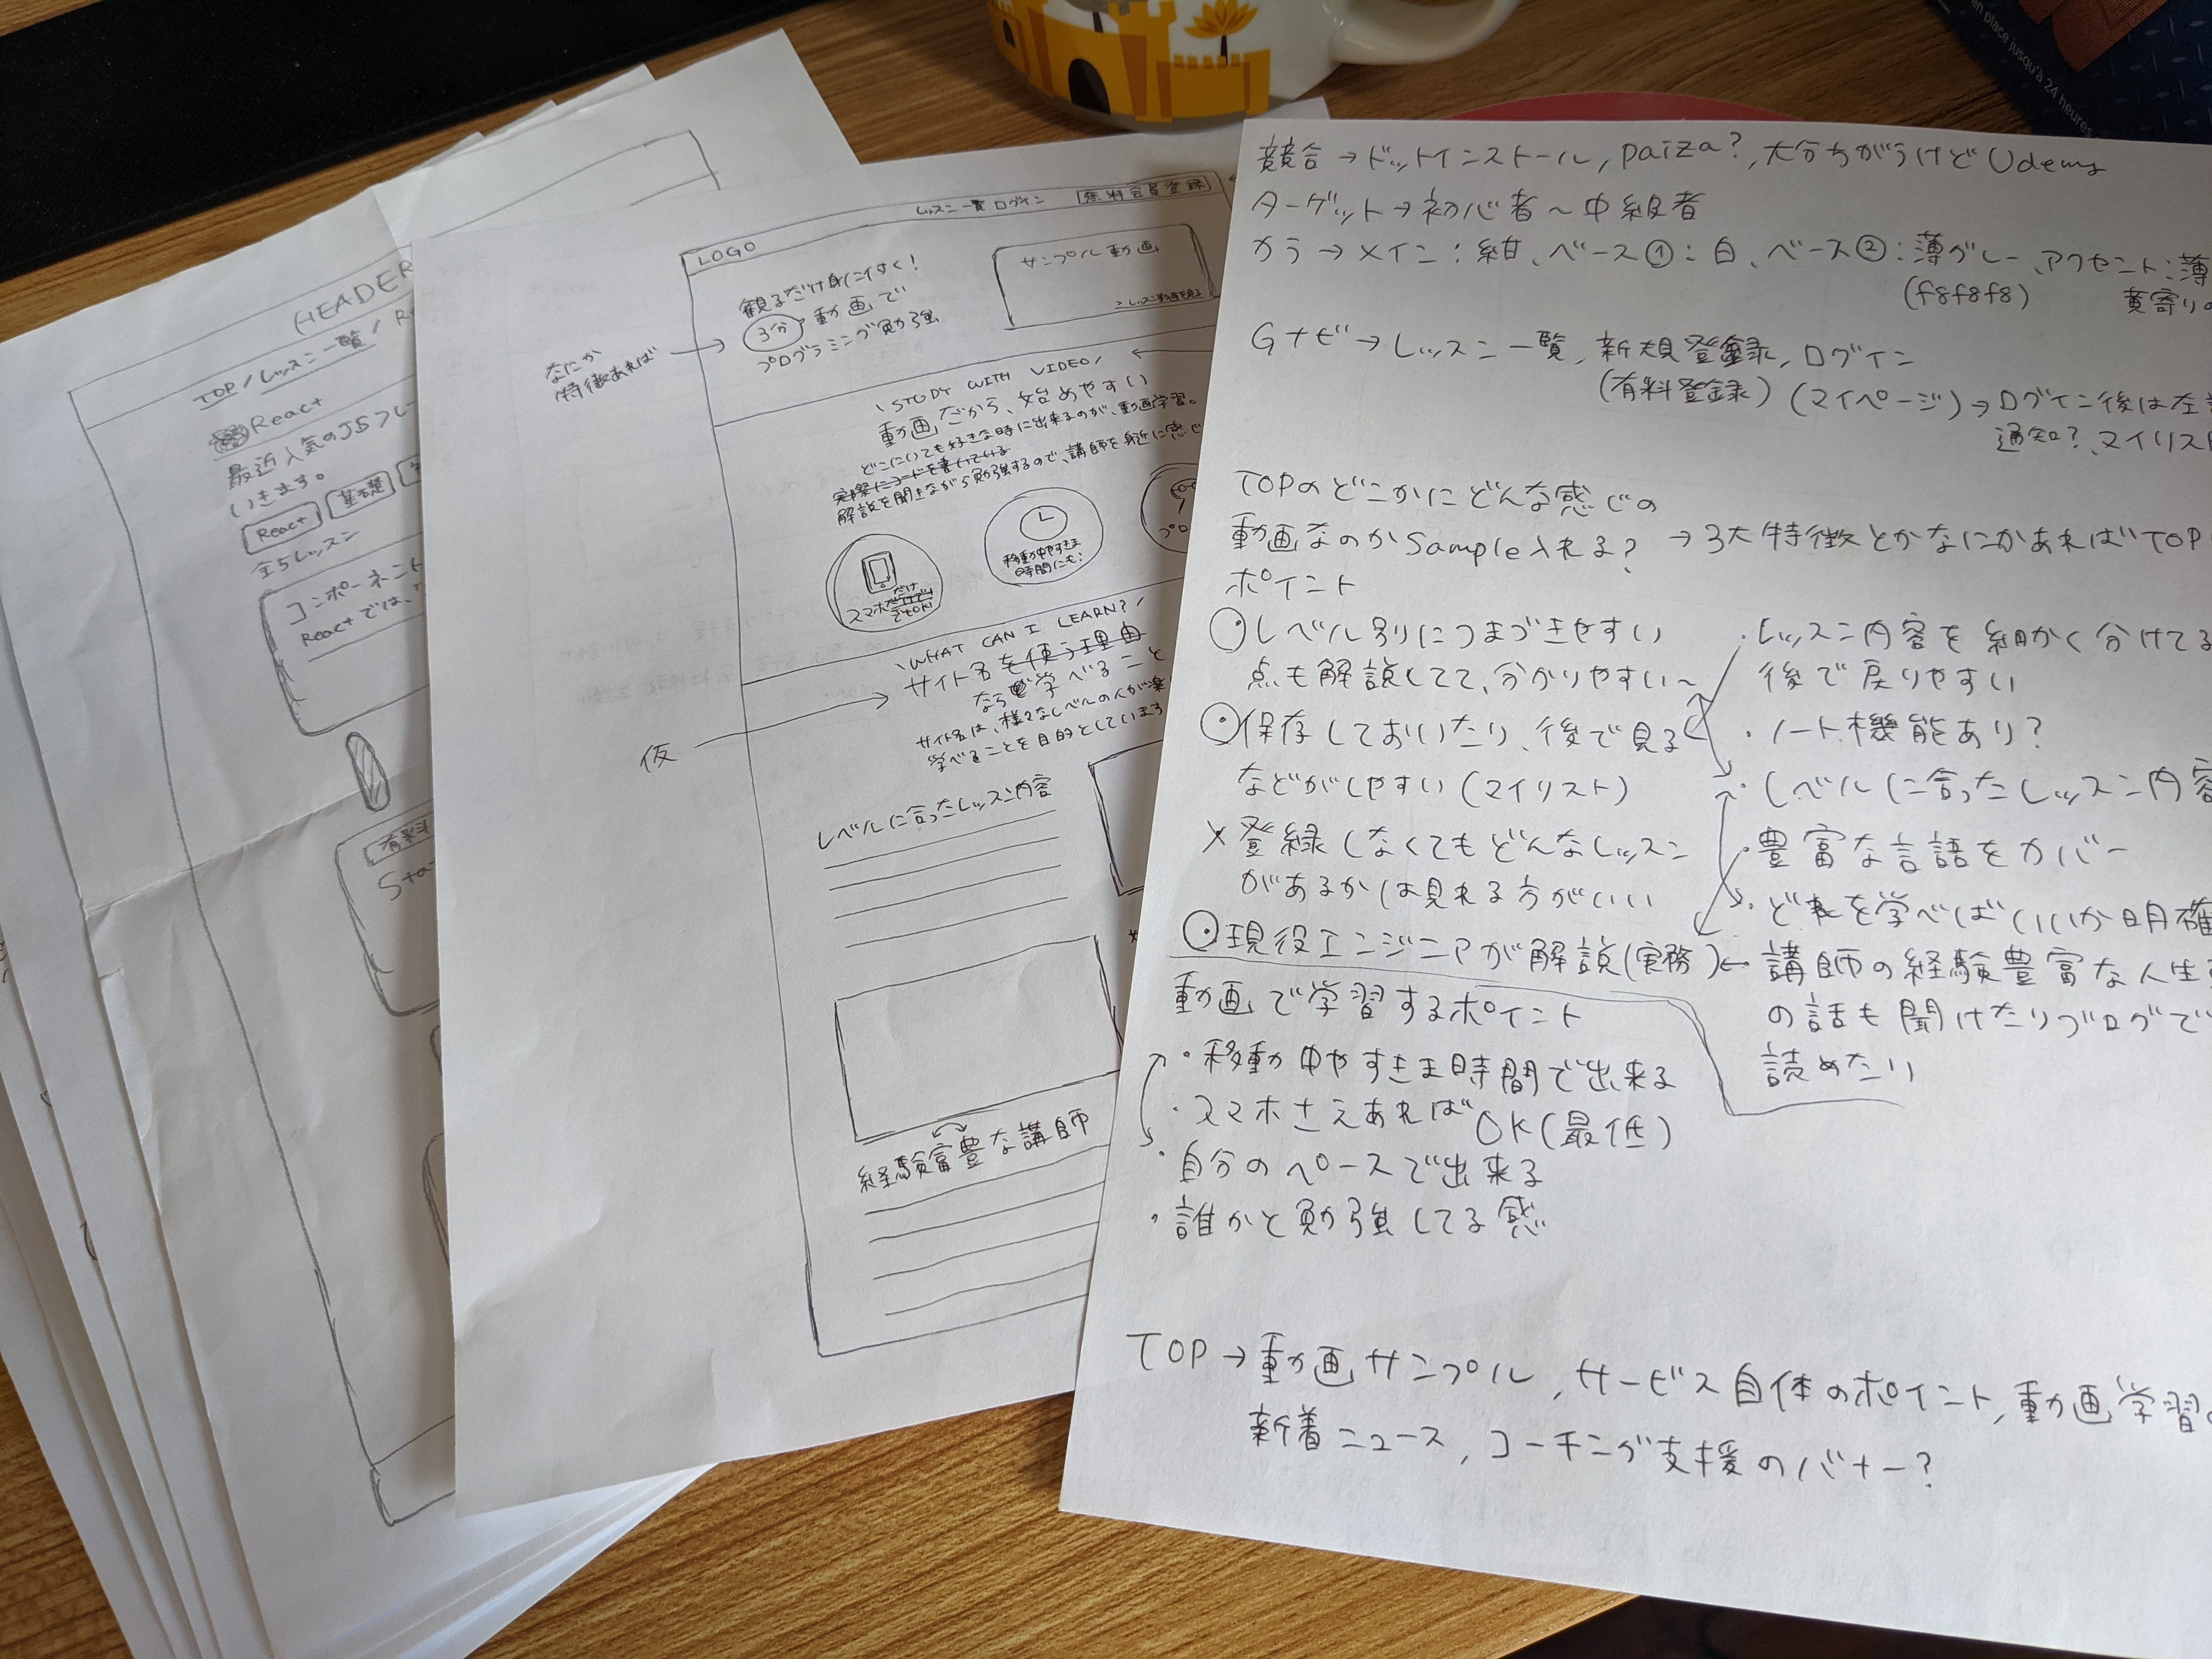 HEADER
TOP / レッスン一覧 / R
React
最近人気のJSフレー
いきます。
React
基礎
全5レッスン
コンポーネント
Reactでは、
有料
Sta
LOGO
レッスン一覧 ログイン
無料会員登録
観るだけ身に付く!
3分 動画で
プログラミング勉強
サンプル動画
なにか
特徴あれば
\ STUDY WITH VIDEO /
動画だから、始めやすい
どこにいても好きな時に出来るのが、動画学習。
実際にコードを書いている
解説を聞きながら勉強するので、講師を身近に感じ
スマホだけ
でもOK!
移動中やすきま
時間にも!
プロ
\ WHAT CAN I LEARN? /
サイト名を使う理由
なら学べること
仮
サイト名は、様々なレベルの人が楽
学べることを目的としています
レベルに合ったレッスン内容
経験富豊な講師
競合→ドットインストール, paiza?, 大分ちがうけどUdemy
ターゲット→初心者〜中級者
カラ→メイン:紺、ベース①:白、ベース②:薄グレー、アクセント:薄
(f8f8f8)
黄寄りの
Gナビ→レッスン一覧, 新規登録, ログイン
(有料登録) (マイページ)→ログイン後は左
通知?、マイリスト
TOPのどこかにどんな感じの
動画なのかSample入れる? →3大特徴とかなにかあればTOP
ポイント
レベル別につまづきやすい
点も解説してて、分かりやすい〜
保存しておいたり、後で見る
などがしやすい(マイリスト)
×登録しなくてもどんなレッスン
があるかは見れる方がいい
現役エンジニアが解説(実務)
・レッスン内容を細かく分けてる
後で戻りやすい
・ノート機能あり?
・レベルに合ったレッスン内容
・豊富な言語をカバー
・どれを学べばいいか明確
講師の経験豊富な人生
の話も聞けたりブログで
読めたり
動画で学習するポイント
・移動中やすきま時間で出来る
・スマホさえあればOK(最低)
・自分のペースで出来る
・誰かと勉強してる感
TOP→動画サンプル, サービス自体のポイント, 動画学習の
新着ニュース, コーチング支援のバナー?
en place jusqu'à 24 heures